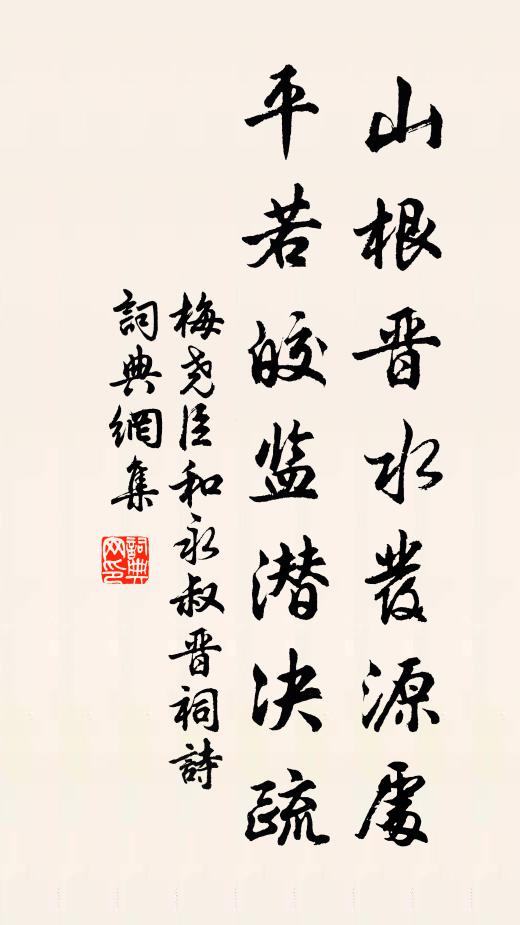 山根晋水發源處
平若皎监潜决疏
梅尧臣和永叔晋祠詩
詞典網集
詞典网印